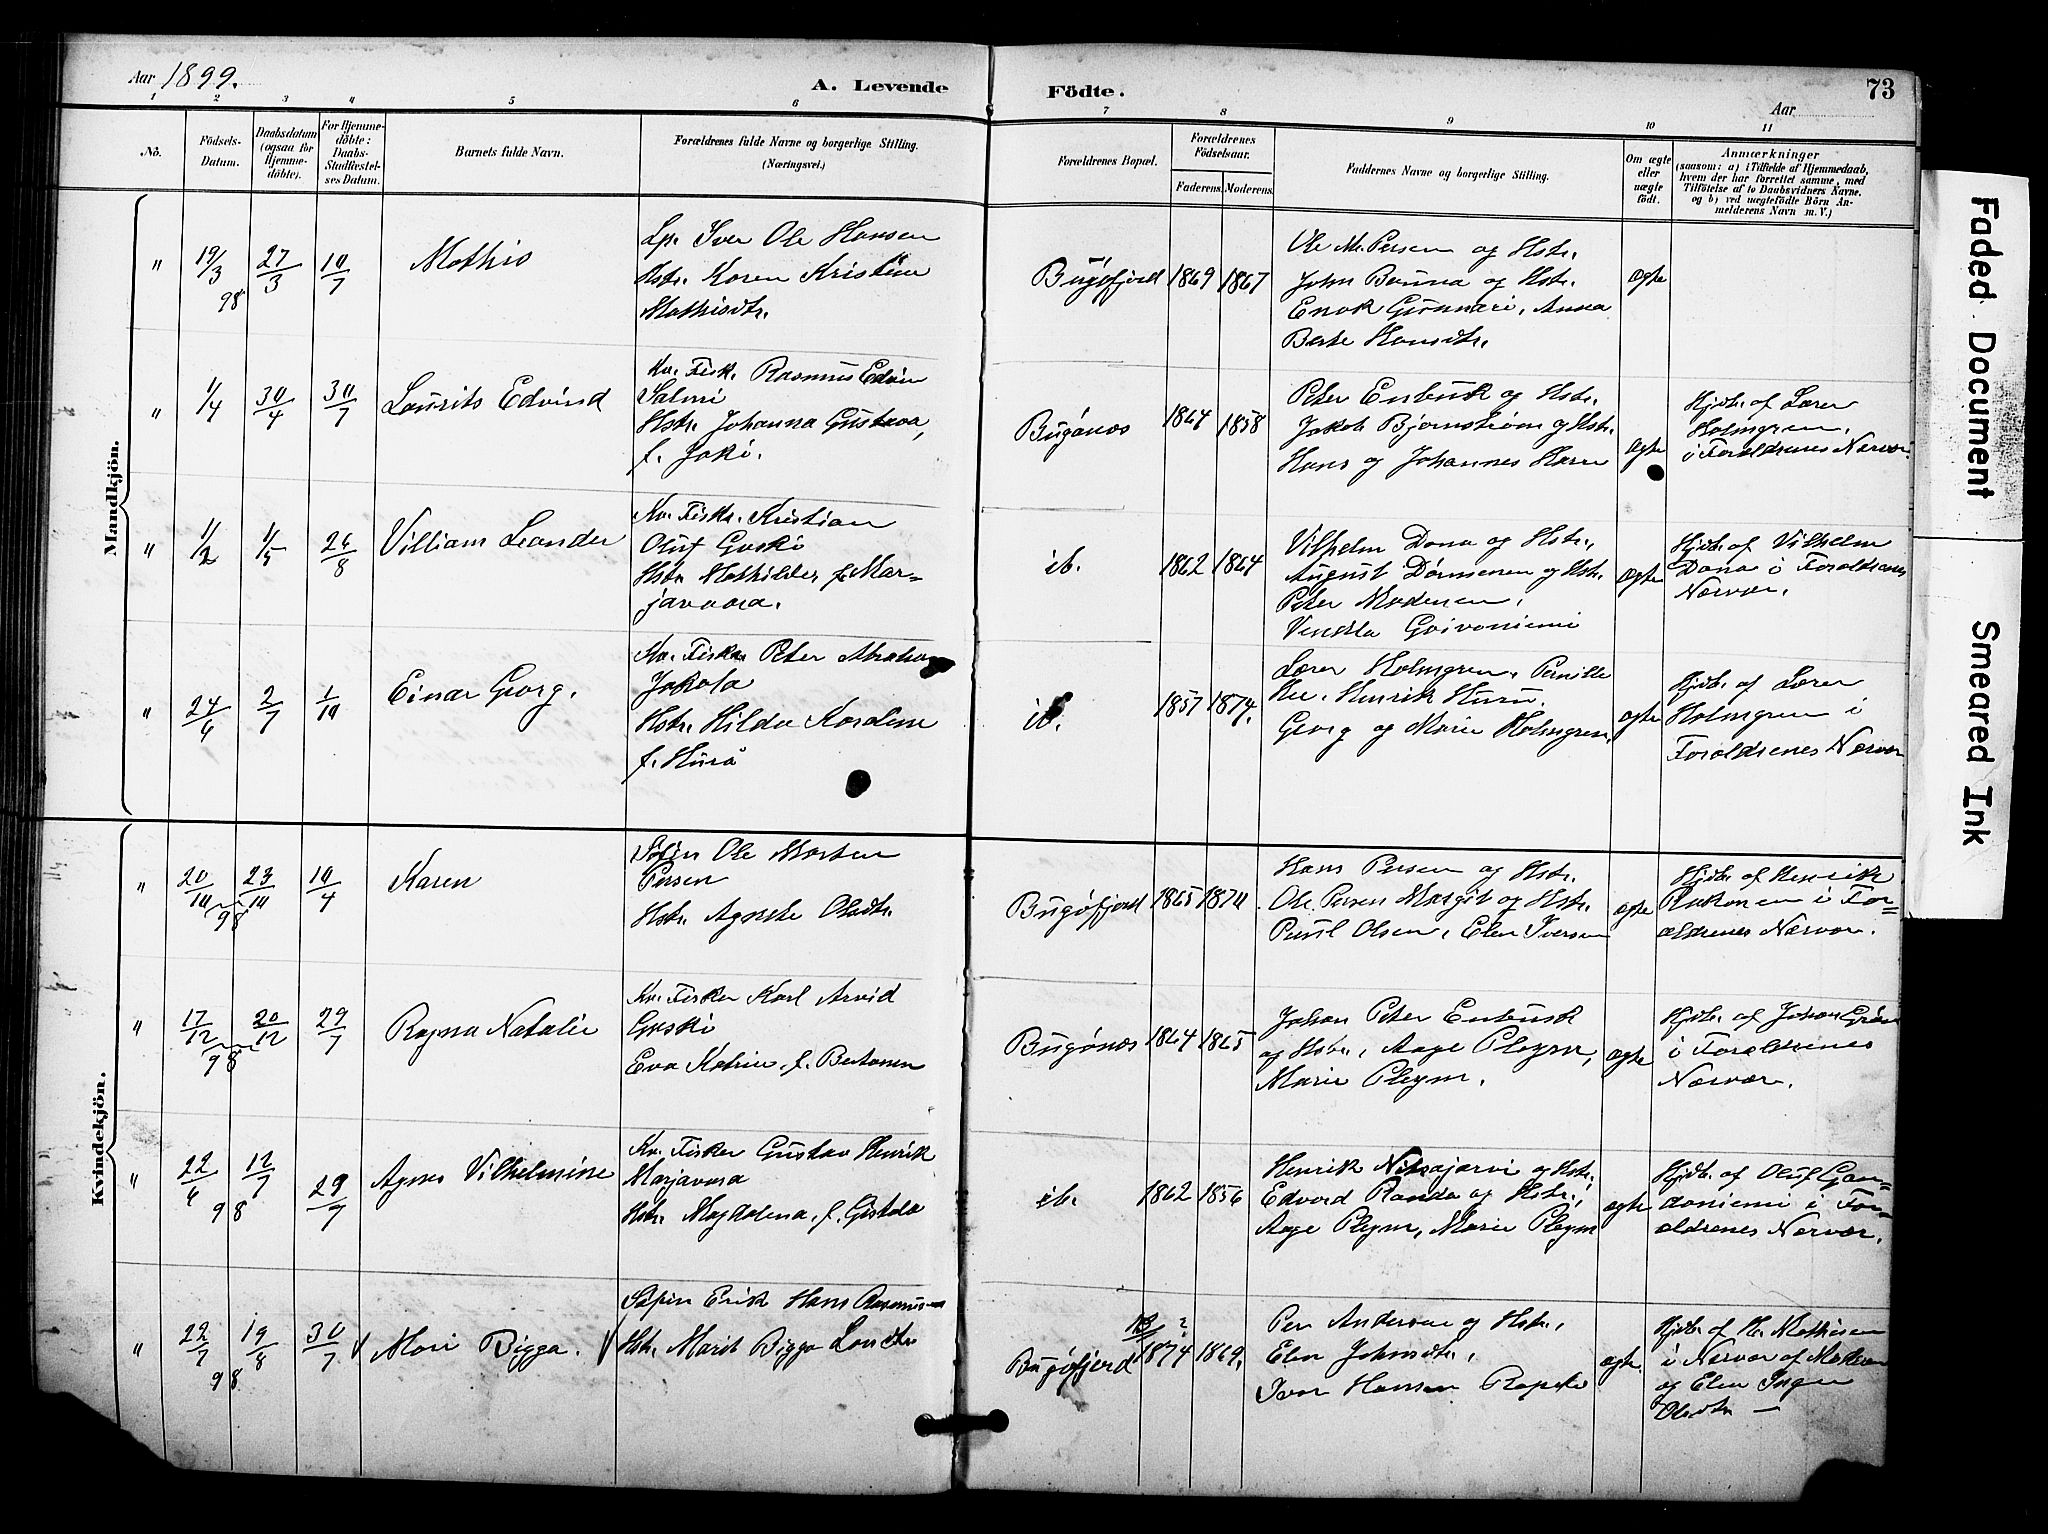 Aar 1899.
A. Levende
Födte.
73
Aar
1 2 3 4 5 6 7 8 9 10 11
No.
Födsels-
Datum.
Daabsdatum
(ogsaa for
Hjemme-
döbte).
For Hjemme-
döbte:
Daabs-
Stadfæstel-
ses Datum.
Barnets fulde Navn.
Forældrenes fulde Navne og borgerlige Stilling.
(Næringsvei.)
Forældrenes Bopæl.
Forældrenes
Födselsaar.
Faderens. Moderens.
Faddernes Navne og borgerlige Stilling.
Om ægte
eller
uægte
födt.
Anmærkninger
(saasom: a) i Tilfælde af Hjemmedaab,
hvem der har forrettet samme, med
Tilföielse af to Daabsvidners Navne.
og b) ved uægtefödte Börn An-
melderens Navn m. V.)
Mandkjön.
" 19/3 98 27/3 10/7 Mathis
Lp. Iver Ole Hansen
Hstr. Karen Kristine
Mathisdtr.
Bugöfjord 1869 1867
Ole M. Persen og Hstr.
John Banna og Hstr.
Enok Gunnari, Anna
Berte Hansdtr.
ægte
" 1/4 30/4 30/7 Laurits Edvind
Kv. Fisk. Rasmus Edvin
Salmi
Hstr. Johanna Gustava,
f. Joki.
Bugönæs 1864 1858
Peter Enbusk og Hstr.
Jakob Bjørnstrøm og Hstr.
Hans og Johannes Haren
ægte
Hjdb. af Lærer
Holmgren,
i Forældrenes Nærvær.
" 1/2 1/5 26/8 Villiam Leander
Kv. Fiskr. Kristian
Oluf Guski
Hstr. Mathilde, f. Mar-
javaara.
ib. 1862 1864
Vilhelm Dona og Hstr.,
August Dörmenen og Hstr.
Peter Madsen,
Vendla Goivaniemi
ægte
Hjdb. af Vilhelm
Dona i Forældrenes
Nærvær.
" 24/6 2/7 1/10 Einar Georg.
Kv. Fisker Peter Abraham
Jakola
Hstr. Hilda Karoline
f. Huru
ib. 1857 1874.
Lærer Holmgren, Pernille
Henrik Huru.
Georg og Marie Holmgren.
ægte
Hjdb. af Lærer
Holmgren i
Forældrenes Nærvær
Kvindekjön.
" 20/10 98 23/10 10/4 Karen
Söfin Ole Morten
Persen
Hstr. Agnete Olsdtr.
Bugöfjord 1865 1870
Hans Persen og Hstr.
Ole Persen Margit og Hstr.
Paul Olsen, Elen Iversen
ægte
Hjdb. af Henrik
Rakonen i For=
ældrenes Nærvær.
" 17/12 98 20/12 29/7 Ragna Natalie
Kv. Fisker Karl Arvid
Guski
Eva Katrine, f. Bertanen
Bugönæs 1864 1865
Johan Peter Enbusk
og Hstr., Aage Pleym,
Marie Pleym.
ægte
Hjdb. af Johan Grön
i Forældrenes
Nærvær.
" 22/6 98 12/7 29/7 Agnes Vilhelmine
Kv. Fisker Gustav Henrik
Marjavara
Hstr. Magdalena, f. Gistala
ib. 1862 1856
Henrik Niskajarvi og Hstr.
Edvard Randa og Hstr.,
Aage Pleym, Marie Pleym
ægte
Hjdb. af Oluf Gan-
daniemi i For-
ældrenes Nærvær.
" 22/7 98 19/8 30/7 Mari Bigga.
Söfin Erik Hans Rasmussen
Hstr. Marit Bigga Larsdtr
Bugöfjord 18 ? 1874 1869.
Per Andersen og Hstr.,
Elen Johnsdtr.,
Ivar Hansen
ægte
Hjdb. af H. Mathisen
i Nærvær af Moderen
og Elen Inger
Olsdtr —
Faded Document
Smeared Ink